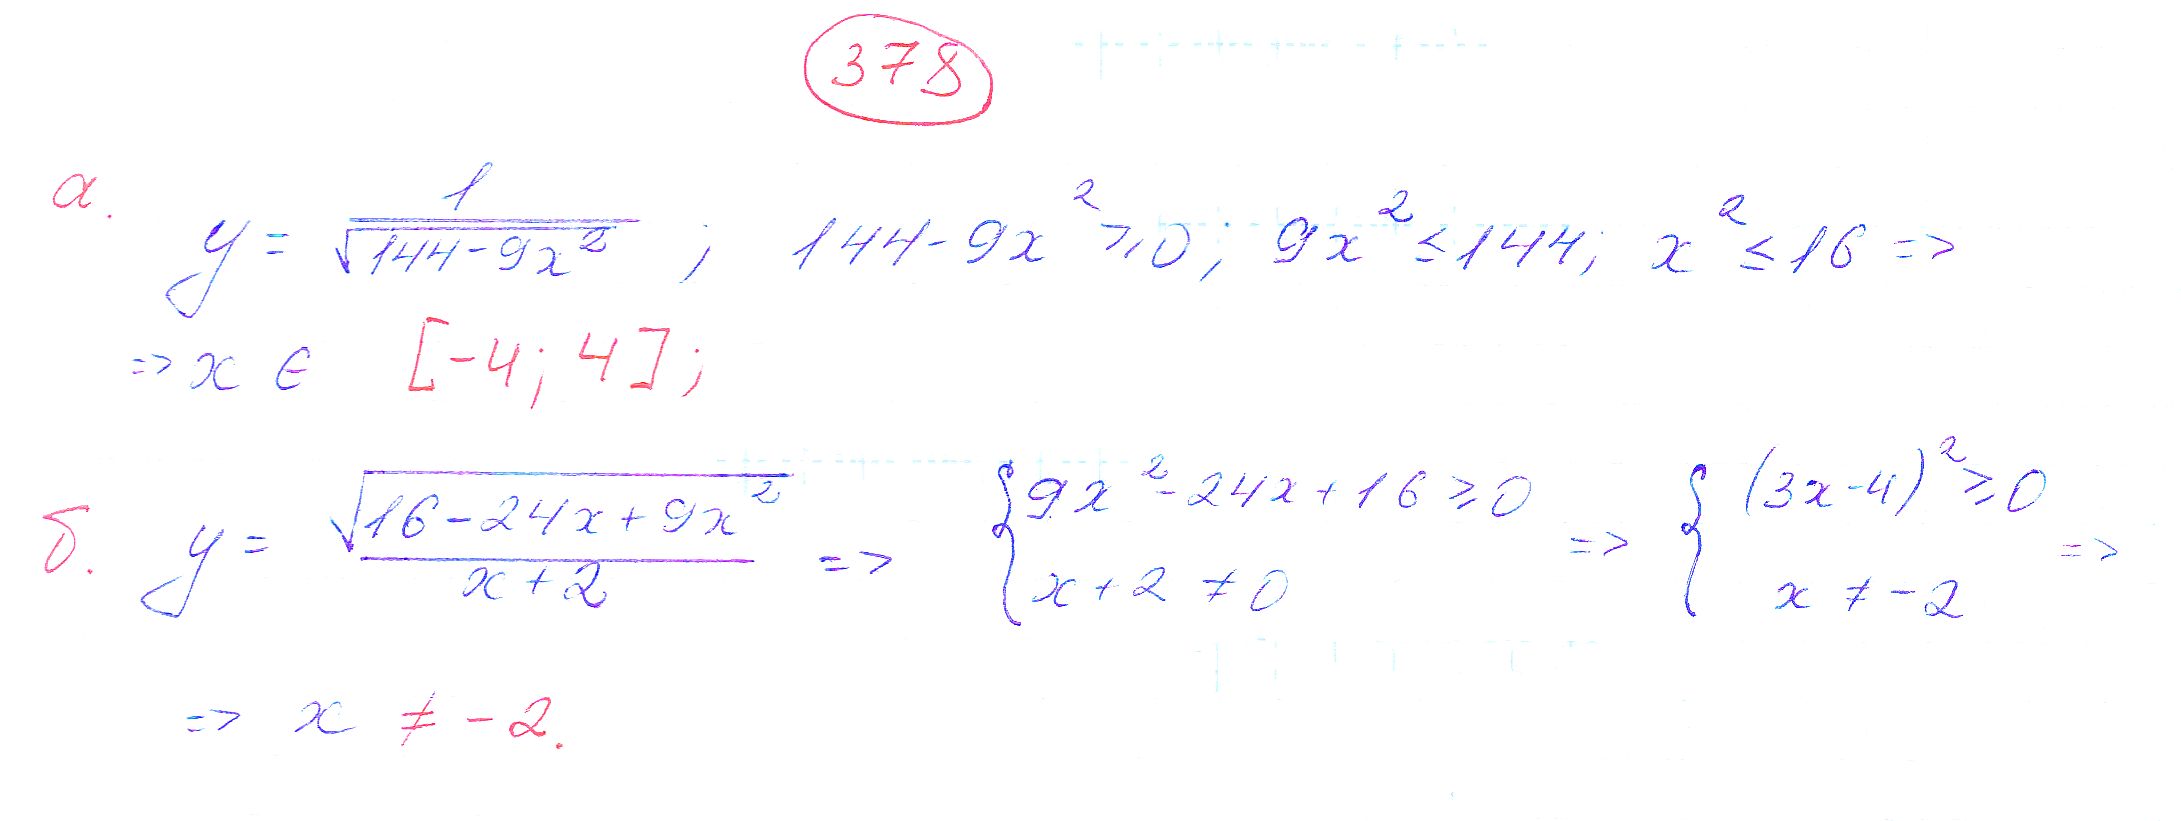 378
а. y = 1/√(144-9x²) ; 144-9x² ≥ 0; 9x² ≤ 144; x² ≤ 16 =>
=> x ∈ [-4; 4];
б. y = √(16-24x+9x²)/(x+2) => { 9x²-24x+16 ≥ 0 ; x+2 ≠ 0 => { (3x-4)² ≥ 0 ; x ≠ -2 =>
=> x ≠ -2.